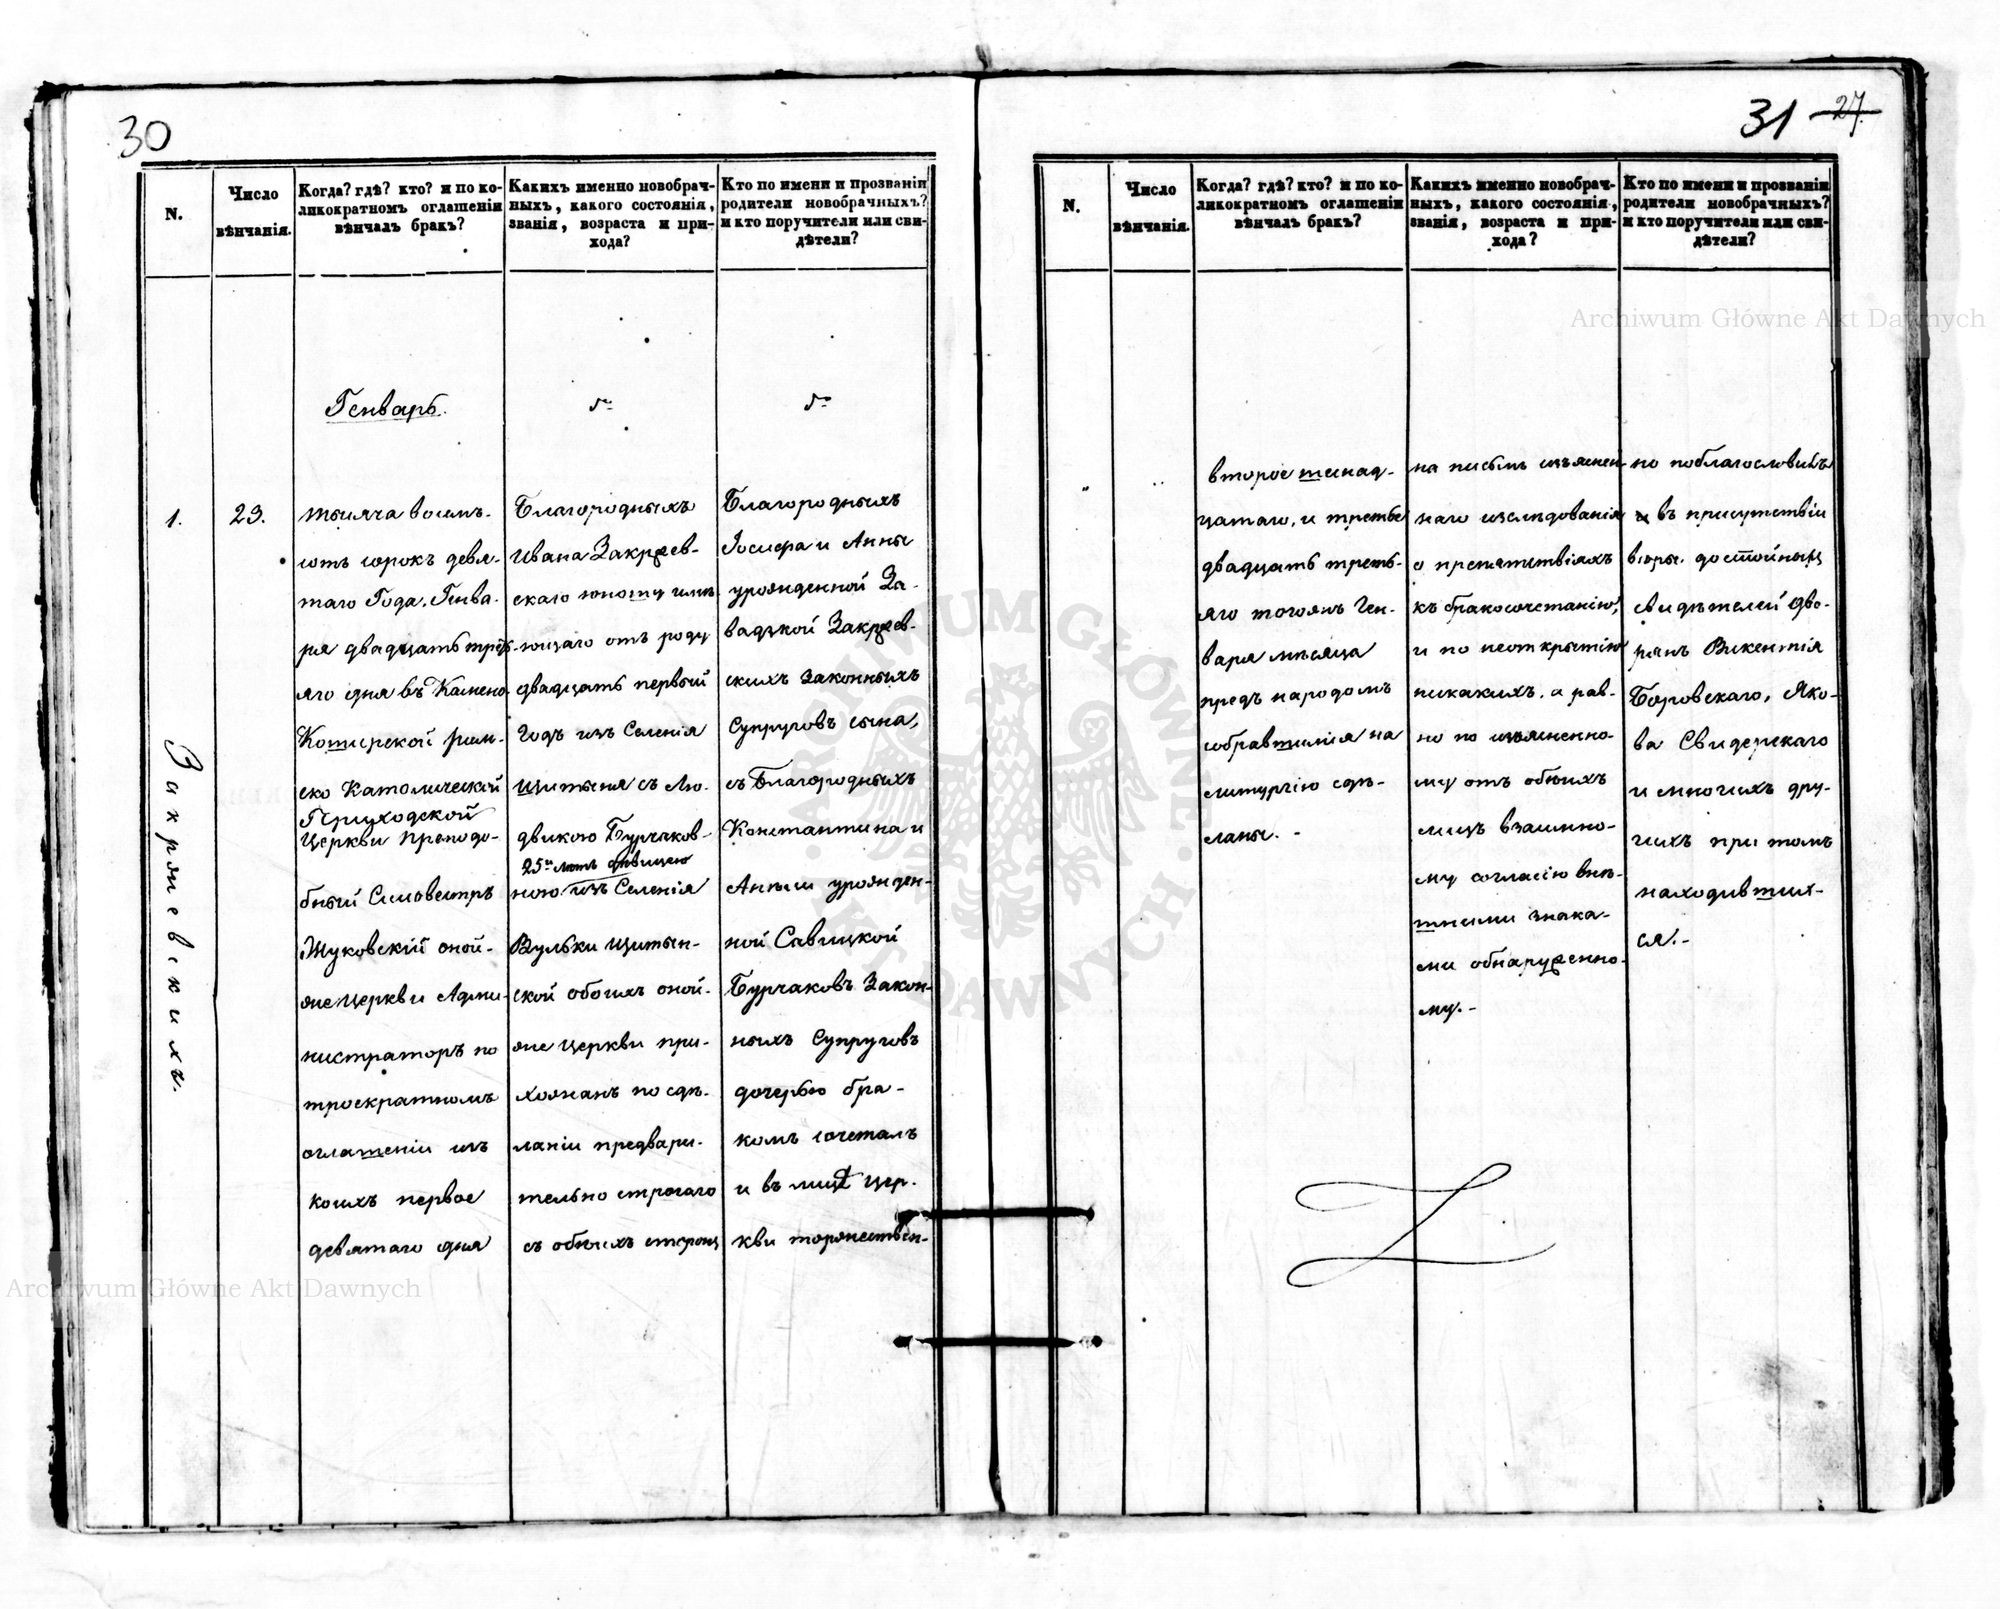 30
N.
Число
вѣнчанія.
Когда? гдѣ? кто? и по ко-
ликократномъ оглашеніи
вѣнчалъ бракъ?
Какихъ именно новобрач-
ныхъ, какого состоянія,
званія, возраста и при-
хода?
Кто по имени и прозваніи
родители новобрачныхъ?
и кто поручители или сви-
дѣтели?
Генварь.
1.
23.
Закржевскихъ.
тысяча восемь-
сотъ сорокъ девя-
таго Года, Генва-
ря двадцать треть-
яго дня въ Камено
Коширской рим-
ско Католической
Приходской
Церкви Преподо-
бный Силовестръ
Жуковскій оной-
же церкви Адми-
нистраторъ по
троекратномъ
оглашеніи изъ
коихъ первое
девятаго дня
Благородныхъ
Ивана Закржев-
скаго юношу имѣ-
ющаго отъ роду
двадцать первый
Годъ изъ Селенія
Щитыня съ Лю-
двикою Бурчаков-
25ть лѣтъ дѣвицею
ною изъ Селенія
Вульки Щитын-
ской обоихъ оной-
же церкви при-
хожанъ по сдѣ-
ланіи предвари-
тельно строгаго
съ обѣихъ сторонъ
Благородныхъ
Іосифа и Анны
урожденной За-
вадзкой Закржев-
скихъ Законныхъ
Супруговъ сына,
съ Благородныхъ
Константина и
Анны урожден-
ной Савицкой
Бурчаковъ Закон-
ныхъ Супруговъ
дочерью бра-
комъ сочеталъ
и въ лицѣ Цер-
кви торжествен-
31 27.
N.
Число
вѣнчанія.
Когда? гдѣ? кто? и по ко-
ликократномъ оглашеніи
вѣнчалъ бракъ?
Какихъ именно новобрач-
ныхъ, какого состоянія,
званія, возраста и при-
хода?
Кто по имени и прозваніи
родители новобрачныхъ?
и кто поручители или сви-
дѣтели?
второе шеснад-
цатаго, и третье
двадцать треть-
яго тогожъ Ген-
варя мѣсяца
предъ народомъ
собравшимся на
литургію сдѣ-
ланы.-
на письмѣ изъяснен-
наго изслѣдованія
о препятствіяхъ
къ бракосочетанію,
и по неоткрытію
никакихъ, а рав-
но по изъясненно-
му отъ обѣихъ
лицъ взаимно-
му согласію внѣ-
шними знака-
ми обнаруженно-
му.-
но поблагословилъ
въ присутствіи
вѣры достойныхъ
свидѣтелей Дво-
рянъ Викентія
Боровскаго, Яко-
ва Свидерскаго
и многихъ дру-
гихъ при томъ
находивших-
ся.-
Archiwum Główne Akt Dawnych
Archiwum Główne Akt Dawnych
ARCHIWUM GŁÓWNE AKT DAWNYCH